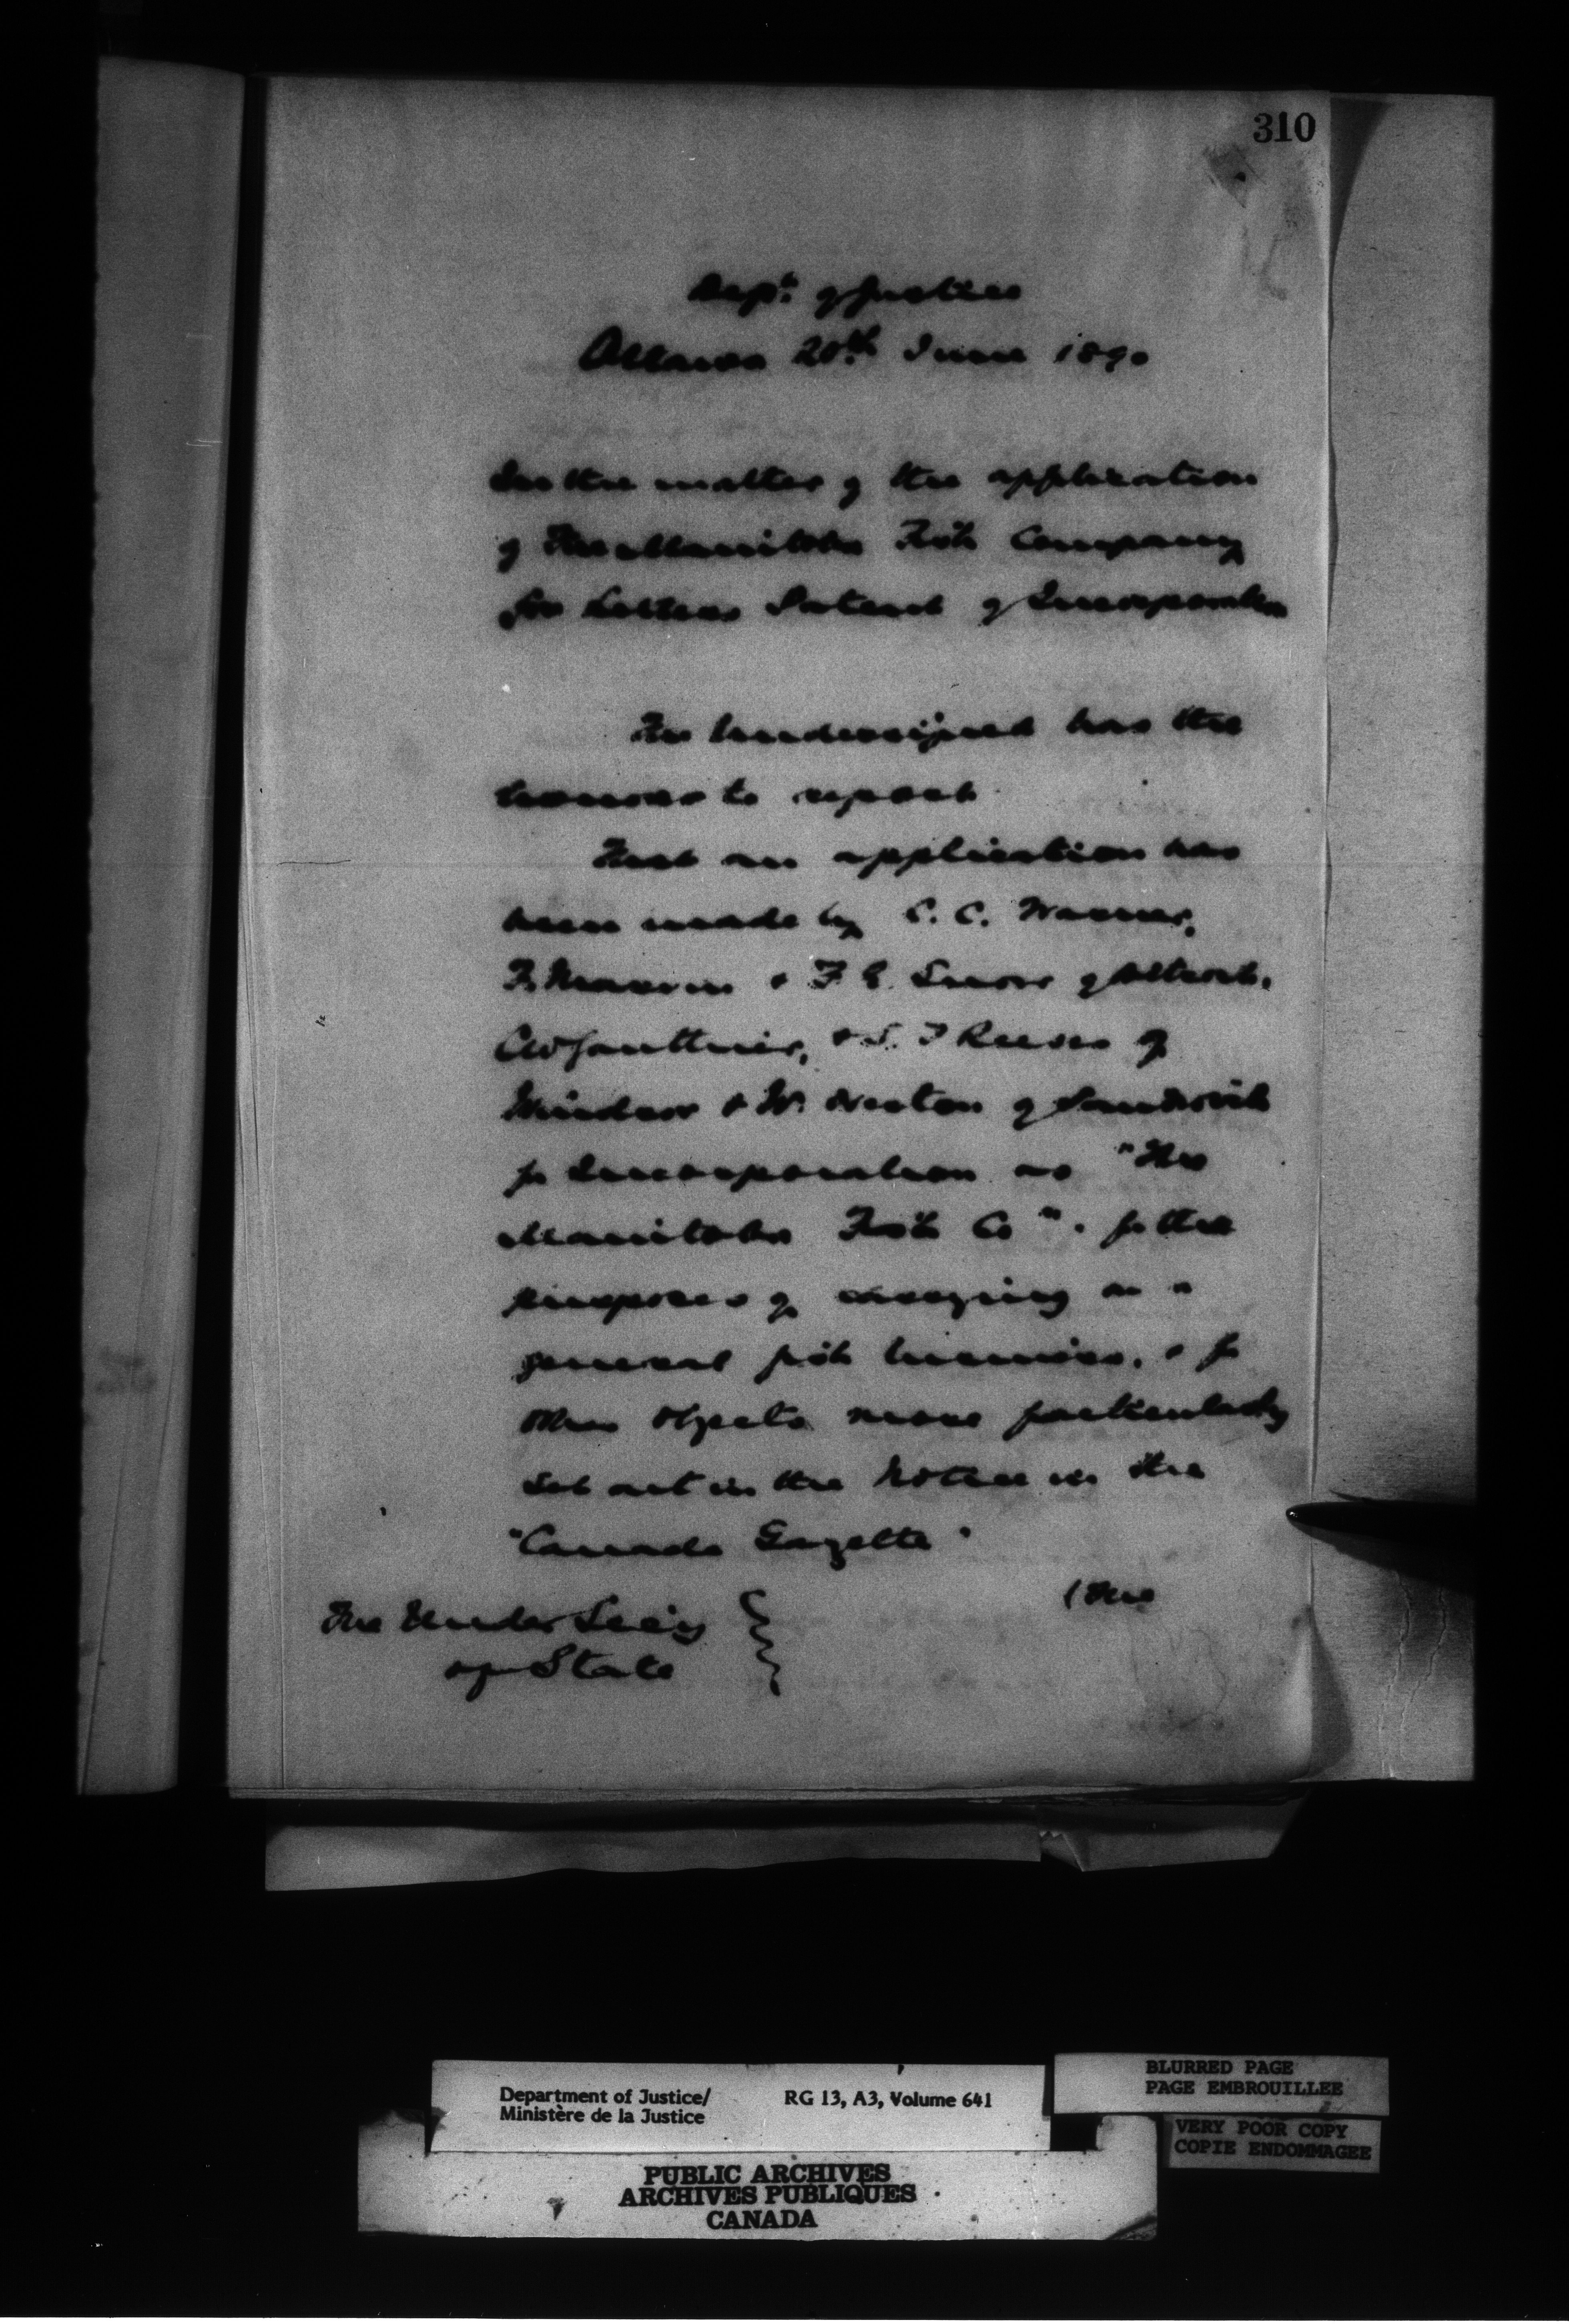 310
Dept. of Justice
Ottawa 20th June 1890
In the matter of the application
of The Manitoba Fish Company
for Letters Patent of Incorporation
The Undersigned has the
honour to report
That an application has
been made by C. C. Warner,
F. & F. E. Snow of Detroit,
C W Gauthier, & S. T Reeves of
Windsor & W. Newton of Sandwich
for Incorporation as "The
Manitoba Fish Co". for the
purposes of carrying on a
general fish business, & for
other objects more particularly
set out in the Notice in the
"Canada Gazette"
(The
The Under Secy
of State
Department of Justice/
Ministère de la Justice
RG 13, A3, Volume 641
BLURRED PAGE
PAGE EMBROUILLEE
VERY POOR COPY
COPIE ENDOMMAGEE
PUBLIC ARCHIVES
ARCHIVES PUBLIQUES
CANADA